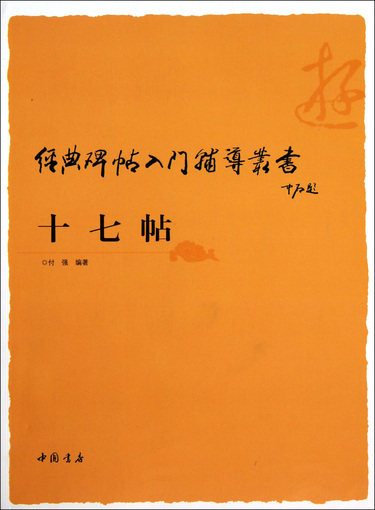 遊
经典碑帖入门辅導叢書
中石题
十七帖
◎付 强 编著
中国书店